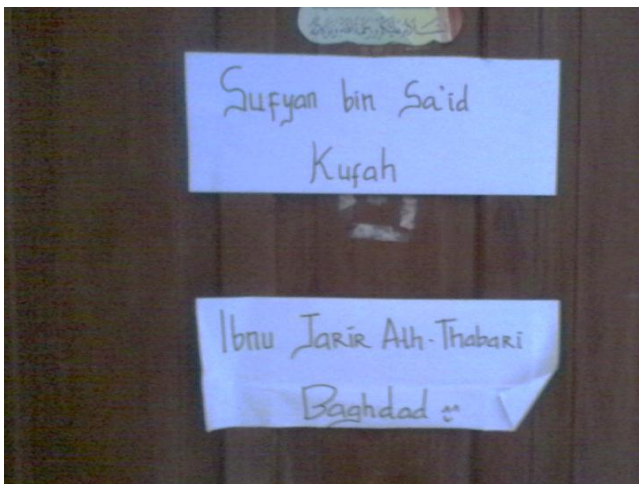 Sufyan bin Sa'id
Kufah
Ibnu Jarir Ath-Thabari
Baghdad ^^